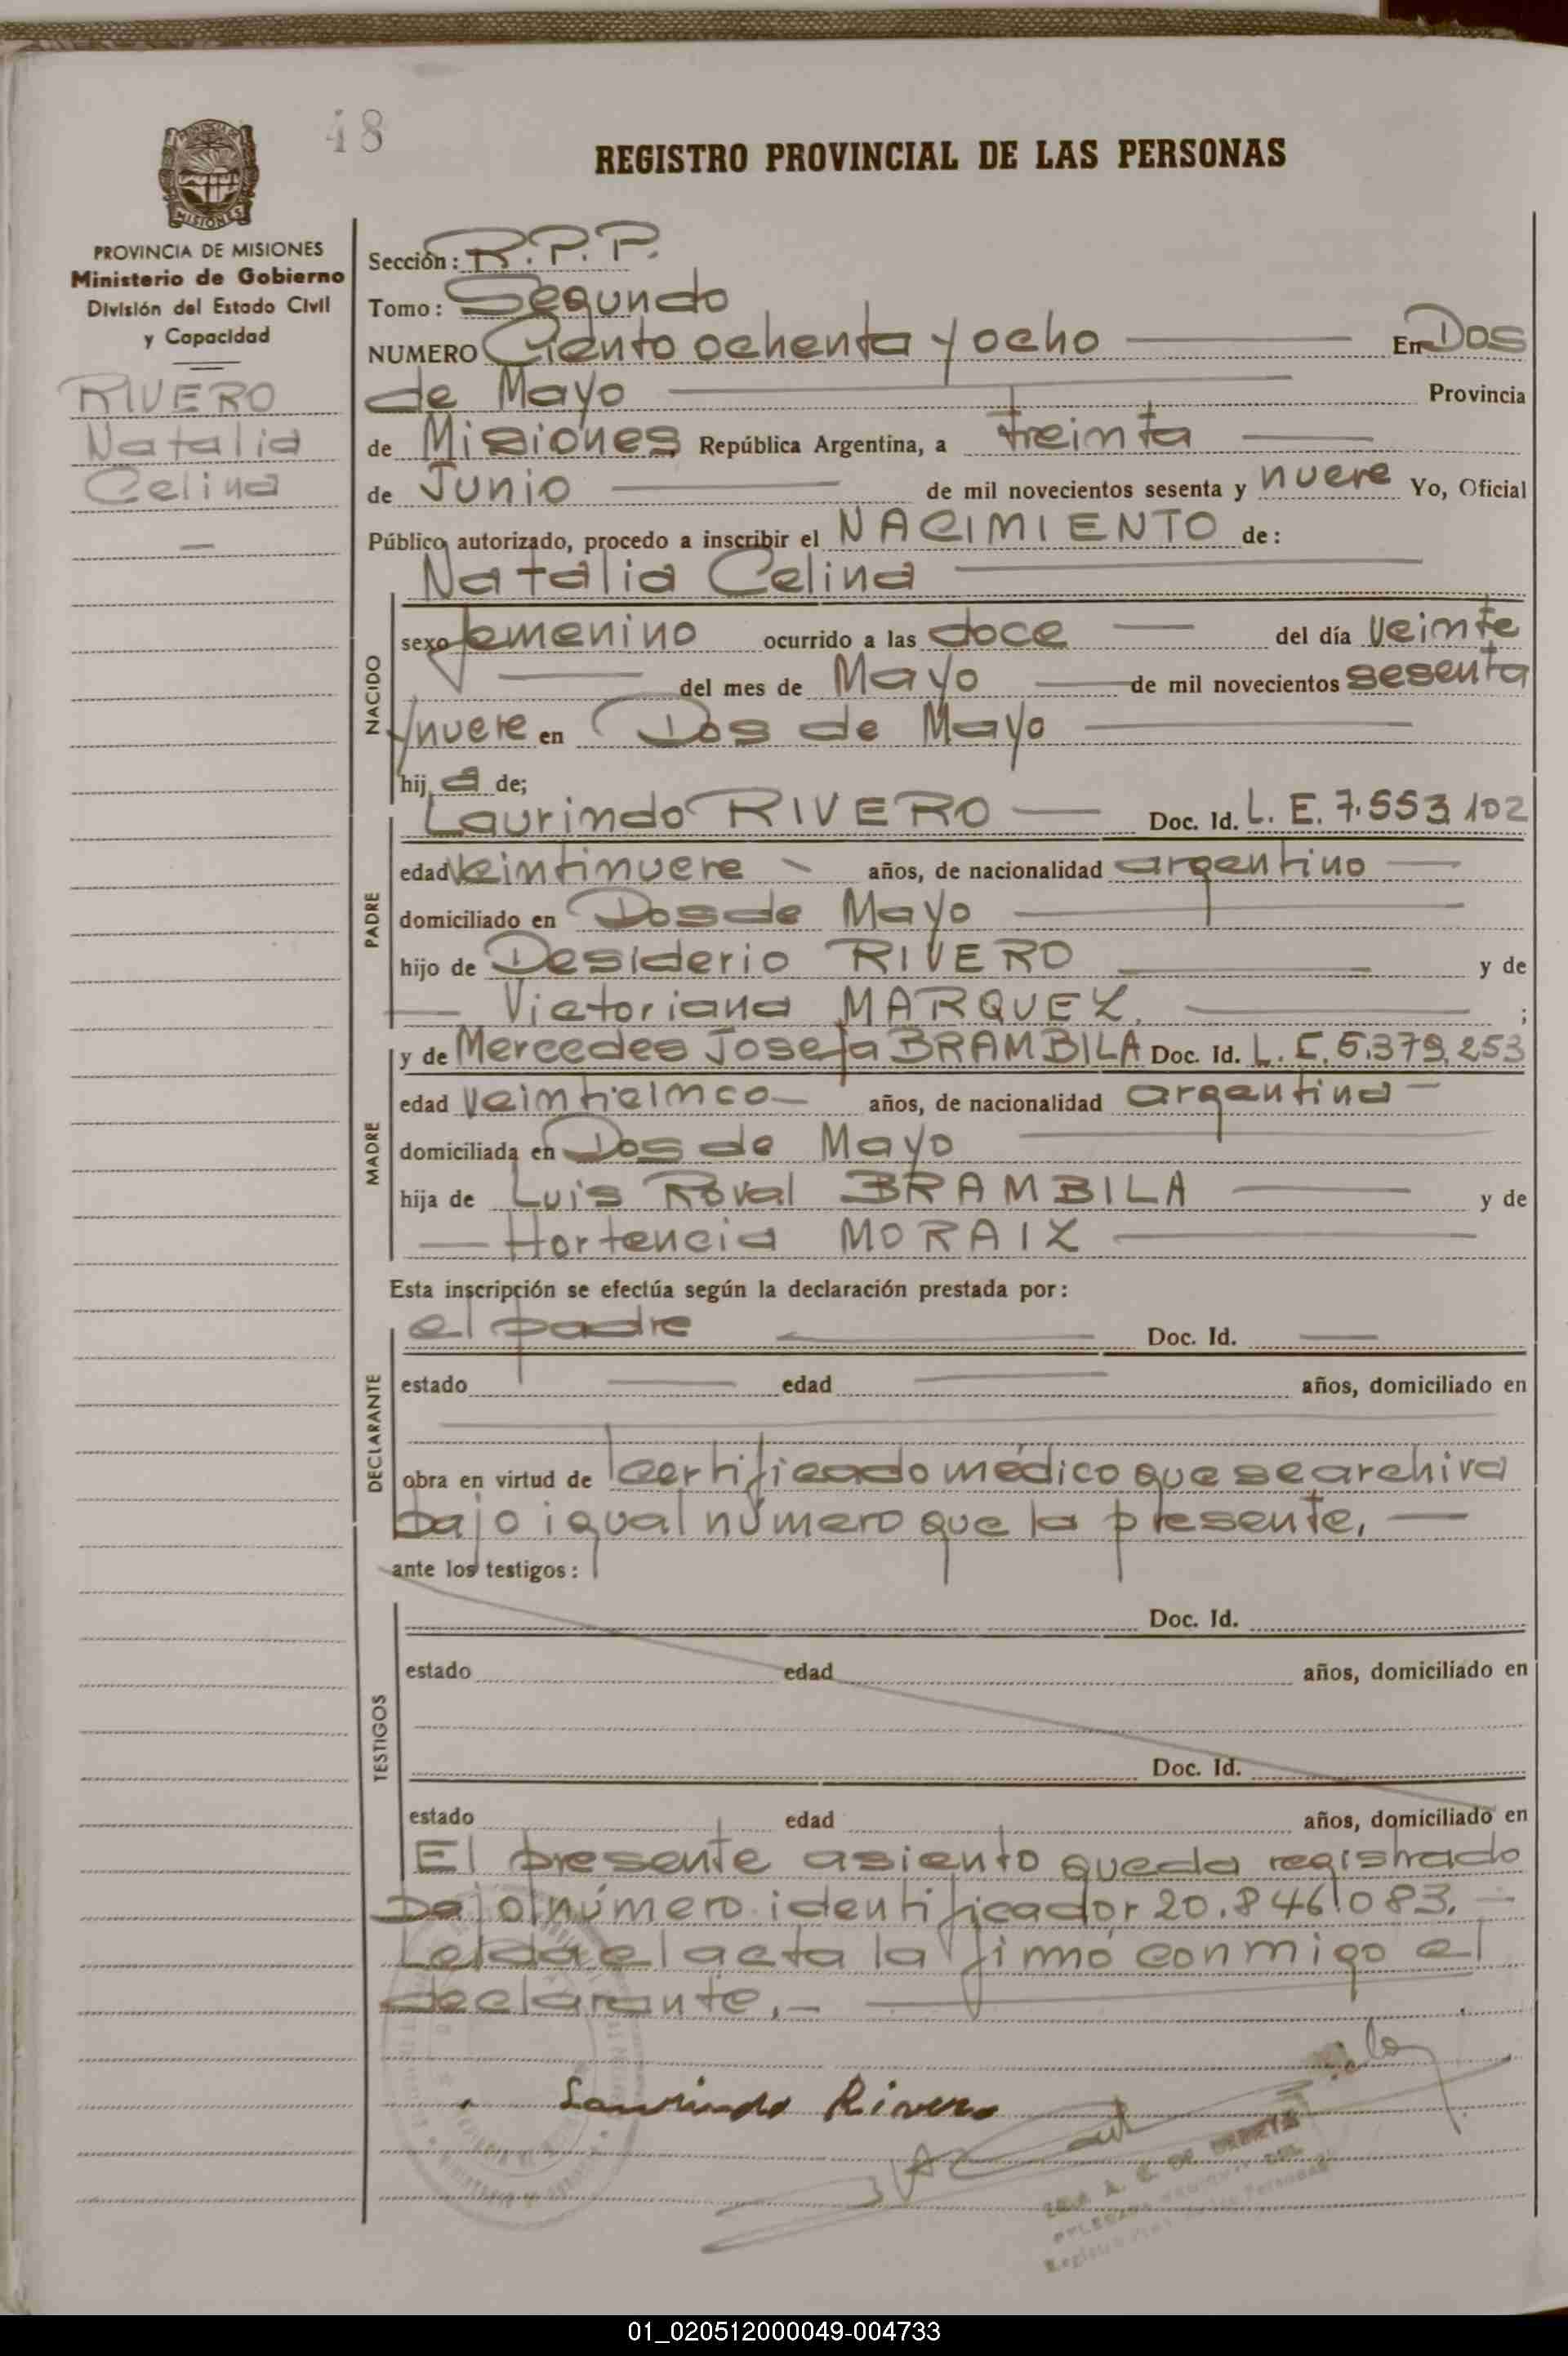 48
REGISTRO PROVINCIAL DE LAS PERSONAS
PROVINCIA DE MISIONES
Ministerio de Gobierno
División del Estado Civil
y Capacidad
RIVERO
Natalia
Celina
Sección: R.P.P.
Tomo: Segundo
NUMERO Ciento ochenta y ocho En Dos
de Mayo Provincia
de Misiones República Argentina, a treinta
de Junio de mil novecientos sesenta y nueve Yo, Oficial
Público autorizado, procedo a inscribir el NACIMIENTO de:
Natalia Celina
NACIDO
sexo femenino ocurrido a las doce del día veinte
del mes de Mayo de mil novecientos sesenta
y nueve en Dos de Mayo
hij a de;
PADRE
Laurindo RIVERO Doc. Id. L. E. 7.553.102
edad veintinueve años, de nacionalidad argentino
domiciliado en Dos de Mayo
hijo de Desiderio RIVERO y de
Victoriana MARQUEZ. ;
MADRE
y de Mercedes Josefa BRAMBILA Doc. Id. L. C. 5.379.253
edad veinticinco años, de nacionalidad argentina
domiciliada en Dos de Mayo
hija de Luis Roval BRAMBILA y de
Hortencia MORAIZ
Esta inscripción se efectúa según la declaración prestada por:
DECLARANTE
el padre Doc. Id.
estado edad años, domiciliado en
obra en virtud de certificado médico que se archiva
bajo igual número que la presente.
ante los testigos:
TESTIGOS
Doc. Id.
estado edad años, domiciliado en
Doc. Id.
estado edad años, domiciliado en
El presente asiento queda registrado
bajo número identificador 20.846.083.
Leida el acta la firmó conmigo el
declarante.-
Laurindo Rivero
01_020512000049-004733